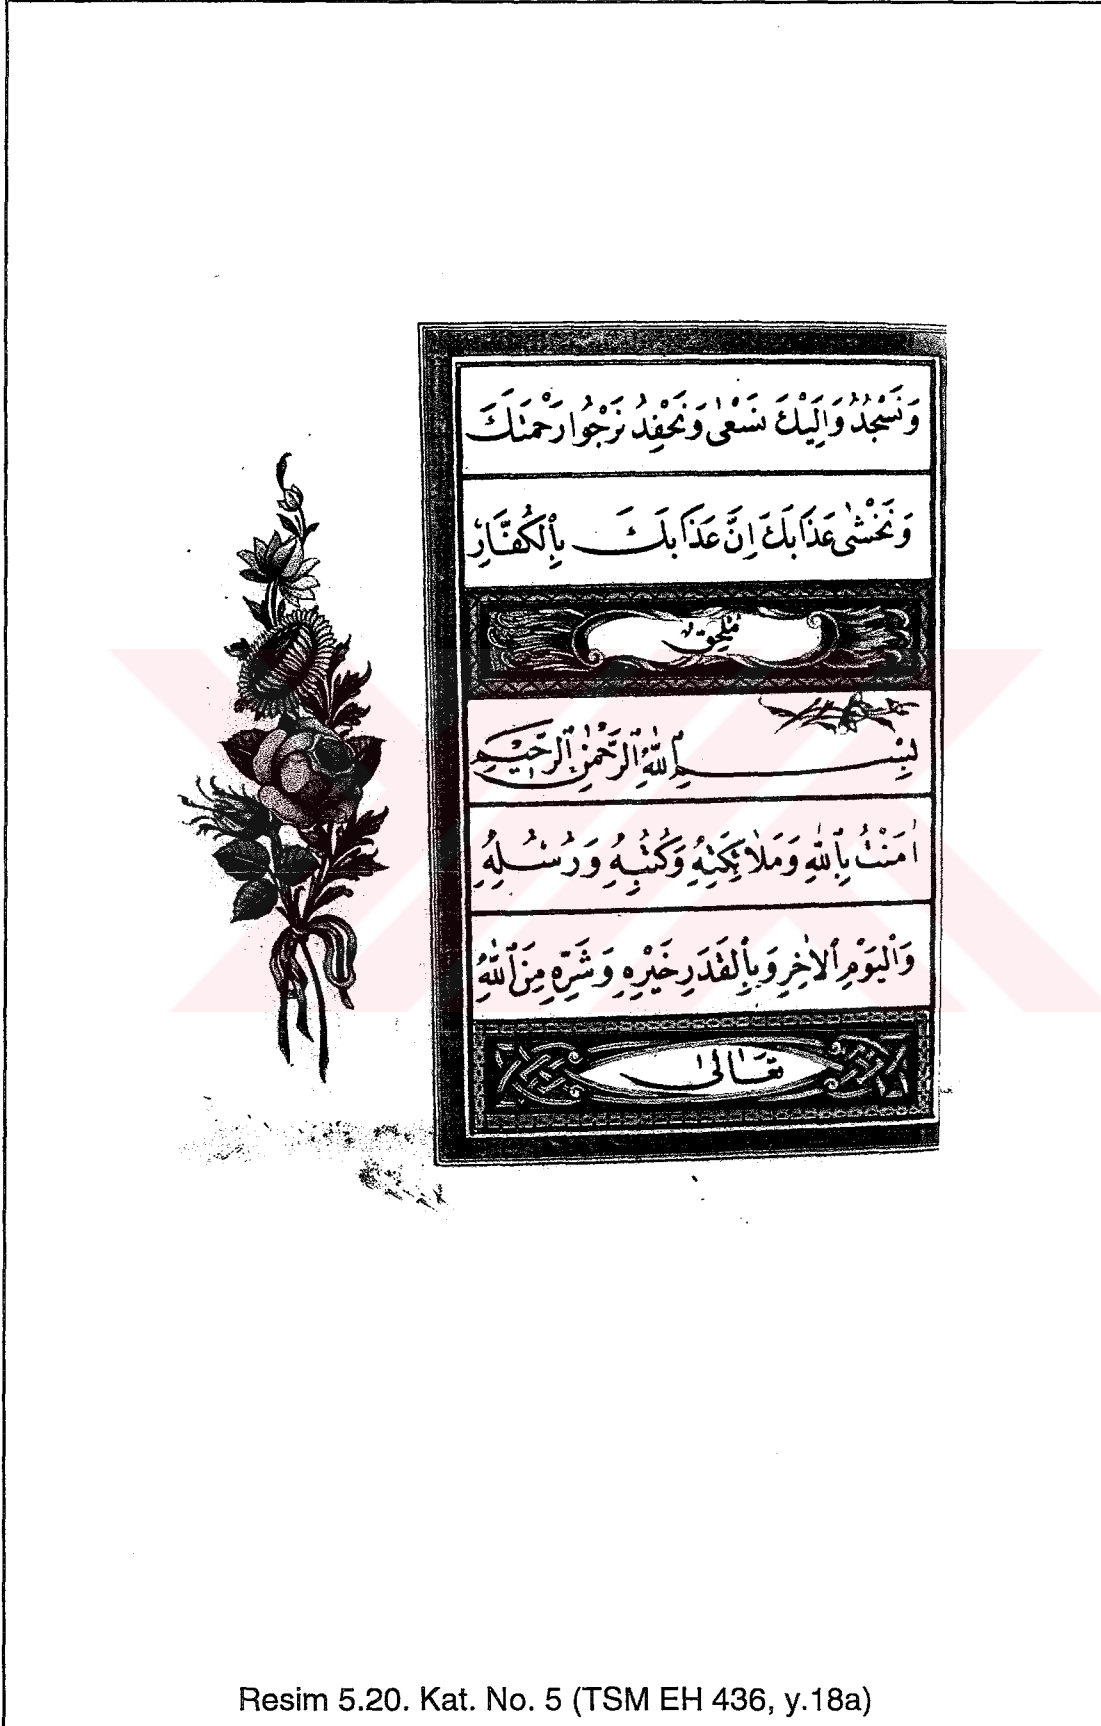 وَنَسْجُدُ وَاِلَيْكَ نَسْعٰى وَنَحْفِدُ نَرْجُوا رَحْمَتَكَ
وَنَخْشٰى عَذَابَكَ اِنَّ عَذَابَكَ بِالْكُفَّارِ
مُلْحِقٌ
بِسْمِ اللّٰهِ الرَّحْمٰنِ الرَّحِيمِ
اٰمَنْتُ بِاللّٰهِ وَمَلٰائِكَتِهٖ وَكُتُبِهٖ وَرُسُلِهٖ
وَالْيَوْمِ الْاٰخِرِ وَبِالْقَدَرِ خَيْرِهٖ وَشَرِّهٖ مِنَ اللّٰهِ
تَعَالٰى
Resim 5.20. Kat. No. 5 (TSM EH 436, y.18a)